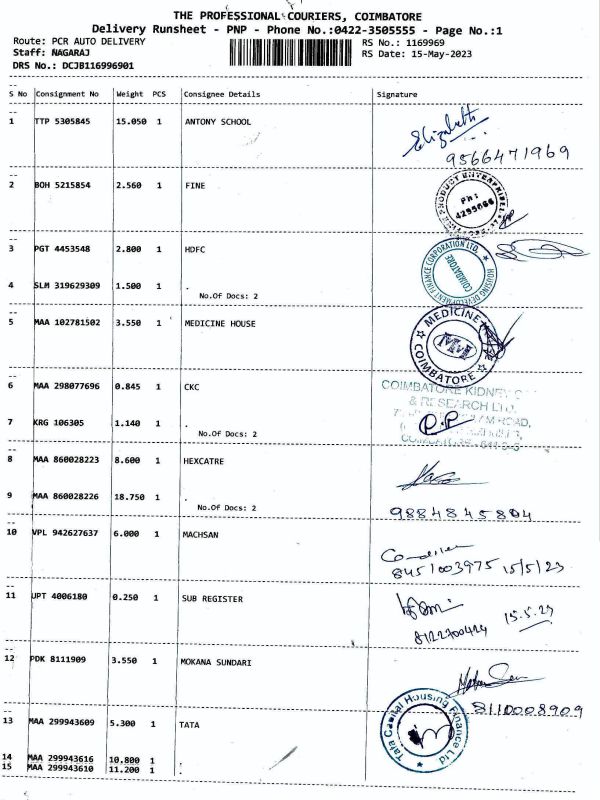 THE PROFESSIONAL COURIERS, COIMBATORE
Delivery Runsheet - PNP - Phone No.:0422-3505555 - Page No.:1
Route: PCR AUTO DELIVERY
RS No.: 1169969
Staff: NAGARAJ
RS Date: 15-May-2023
DRS No.: DCJB116996901
S No Consignment No Weight PCS Consignee Details Signature
1 TTP 5305845 15.050 1 ANTONY SCHOOL
Elizabeth
9566471969
2 BOH 5215854 2.560 1 FINE
Ph:
4295666
3 PGT 4453548 2.800 1 HDFC
HOUSING DEVELOPMENT FINANCE CORPORATION LTD.
COIMBATORE
4 SLM 319629309 1.500 1 .
No.Of Docs: 2
5 MAA 102781502 3.550 1 MEDICINE HOUSE
MEDICINE
MM
COIMBATORE
6 MAA 298077696 0.845 1 CKC
COIMBATORE KIDNEY
& RESEARCH LTD.
7 KRG 106305 1.140 1 .
No.Of Docs: 2
8 MAA 860028223 8.600 1 HEXCATRE
9 MAA 860028226 18.750 1 .
No.Of Docs: 2
9884845804
10 VPL 942627637 6.000 1 MACHSAN
8451003975 15/5/23
11 UPT 4006180 0.250 1 SUB REGISTER
15.5.23
8122700424
12 PDK 8111909 3.550 1 MOKANA SUNDARI
8110008909
13 MAA 299943609 5.300 1 TATA
Tata Capital Housing Finance Ltd
14 MAA 299943616 10.800 1 .
15 MAA 299943610 11.200 1 .